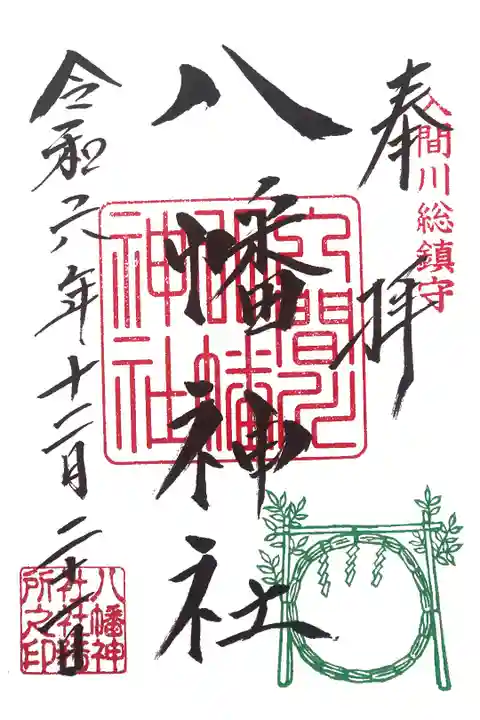 奉拝
入間川総鎮守
八幡神社
入間川
八幡
神社
令和六年十二月二十二日
八幡神
社社務
所之印